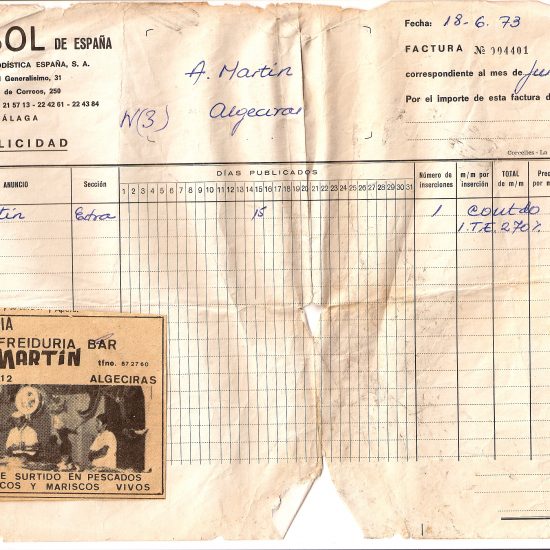 SOL DE ESPAÑA
ODÍSTICA ESPAÑA, S. A.
l Generalísimo, 31
de Correos, 250
21 57 13 - 22 42 61 - 22 43 84
ÁLAGA
LICIDAD
A. Martin
N(3) Algeciras
Fecha: 18-6.73
FACTURA Nº 004401
correspondiente al mes de Jun
Por el importe de esta factura d
Corcelles - La
ANUNCIO
Sección
DÍAS PUBLICADOS
1 2 3 4 5 6 7 8 9 10 11 12 13 14 15 16 17 18 19 20 21 22 23 24 25 26 27 28 29 30 31
Número de inserciones
m/m por inserción
TOTAL de m/m
Prec
por m
tin Extra 15 1 contdo
I.T.E. 2'70%
IA
FREIDURIA BAR
MARTÍN
tfno. 672760
12 ALGECIRAS
E SURTIDO EN PESCADOS
COS Y MARISCOS VIVOS